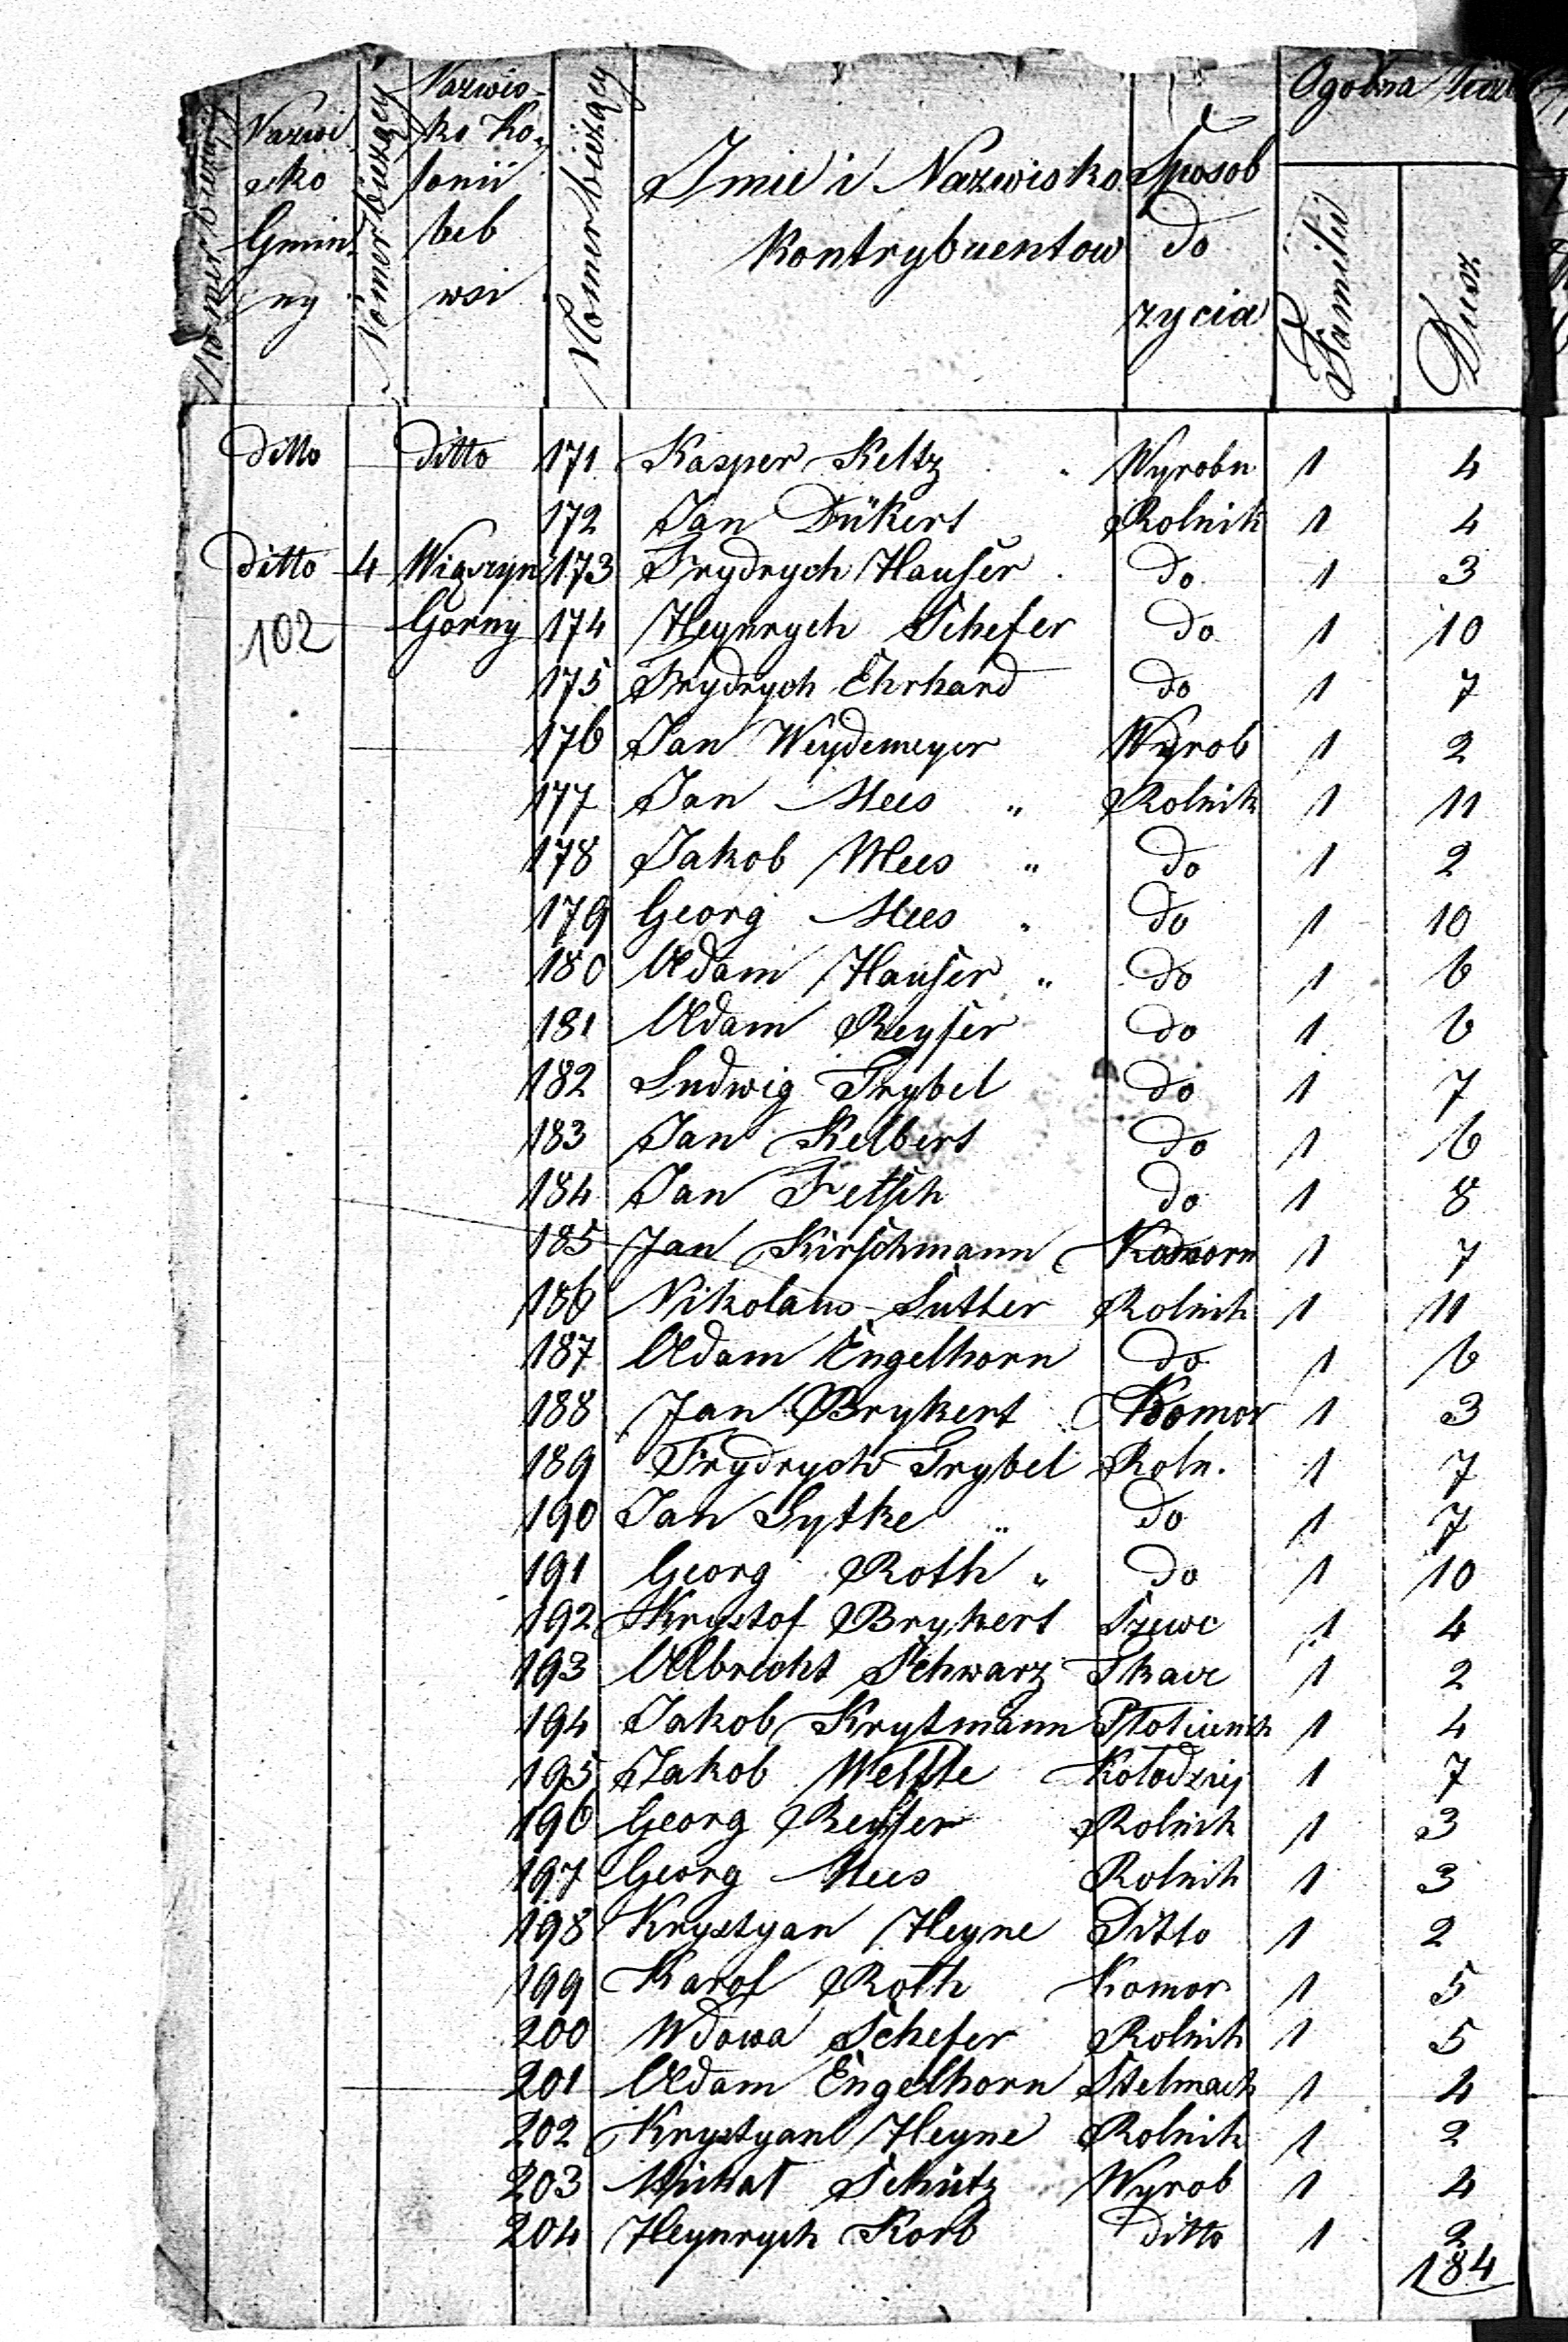 Nomer bieżący
Nazwi
sko
Gmin
ny
Nomer bieżący
Nazwis-
ko Ko-
lonii
lub
wsi
Nomer bieżący
Imie i Nazwisko
Kontrybuentow
Sposob
do
zycia
Ogolna
Familii
Dusz
ditto ditto 171 Kasper Keltz Wyrobn 1 4
172 Jan Dükert Rolnik 1 4
ditto 4 Wiączyn 173 Frydrych Hauser do 1 3
102 Gorny 174 Heynrych Schefer do 1 10
175 Frydrych Ehrhard do 1 7
176 Jan Weydemeyer Wyrob 1 2
177 Jan Mees " Rolnik 1 11
178 Jakob Mees " do 1 2
179 Georg Mees " do 1 10
180 Adam Hauser " do 1 6
181 Adam Reyser do 1 6
182 Ludwig Trybel do 1 7
183 Jan Kelbert do 1 6
184 Jan Fetsch do 1 8
185 Jan Kirschmann Komorn 1 7
186 Nikolaus Sutter Rolnik 1 11
187 Adam Engelhorn do 1 6
188 Jan Brykert Komor 1 3
189 Frydrych Trybel Roln. 1 7
190 Jan Lytke " do 1 7
191 Georg Roth " do 1 10
192 Krystof Brykert Szewc 1 4
193 Albrecht Schwarz Tkacz 1 2
194 Jakob Krytmann 1 4
195 Jakob Welfle Kołodziej 1 7
196 Georg Reyser Rolnik 1 3
197 Georg Mees Rolnik 1 3
198 Krystyan Heyne Ditto 1 2
199 Karol Roth Komor 1 5
200 Wdowa Schefer Rolnik 1 5
201 Adam Engelhorn Stelmach 1 4
202 Krystyan Heyne Rolnik 1 2
203 Michał Schütz Wyrob 1 4
204 Heynrych Korb ditto 1 2
184